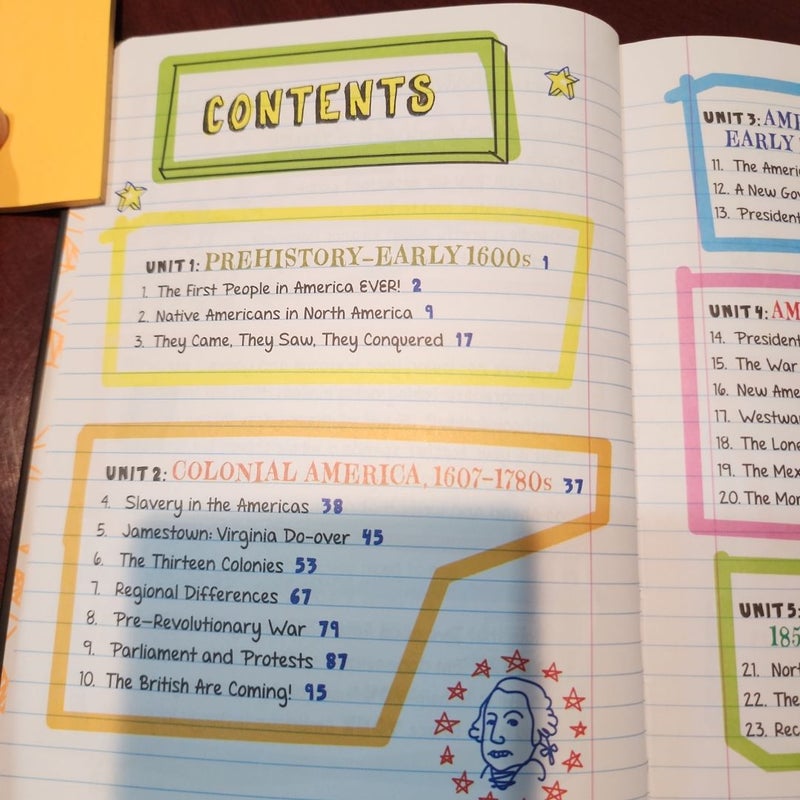 CONTENTS
UNIT 1: PREHISTORY–EARLY 1600s 1
1. The First People in America EVER! 2
2. Native Americans in North America 9
3. They Came, They Saw, They Conquered 17
UNIT 2: COLONIAL AMERICA, 1607–1780s 37
4. Slavery in the Americas 38
5. Jamestown: Virginia Do-over 45
6. The Thirteen Colonies 53
7. Regional Differences 67
8. Pre–Revolutionary War 79
9. Parliament and Protests 87
10. The British Are Coming! 95
UNIT 3:
EARLY
11. The
12. A New
13.
UNIT 4:
14.
15. The War
16. New
17.
18. The
19. The
20. The
UNIT 5:
21.
22. The
23.